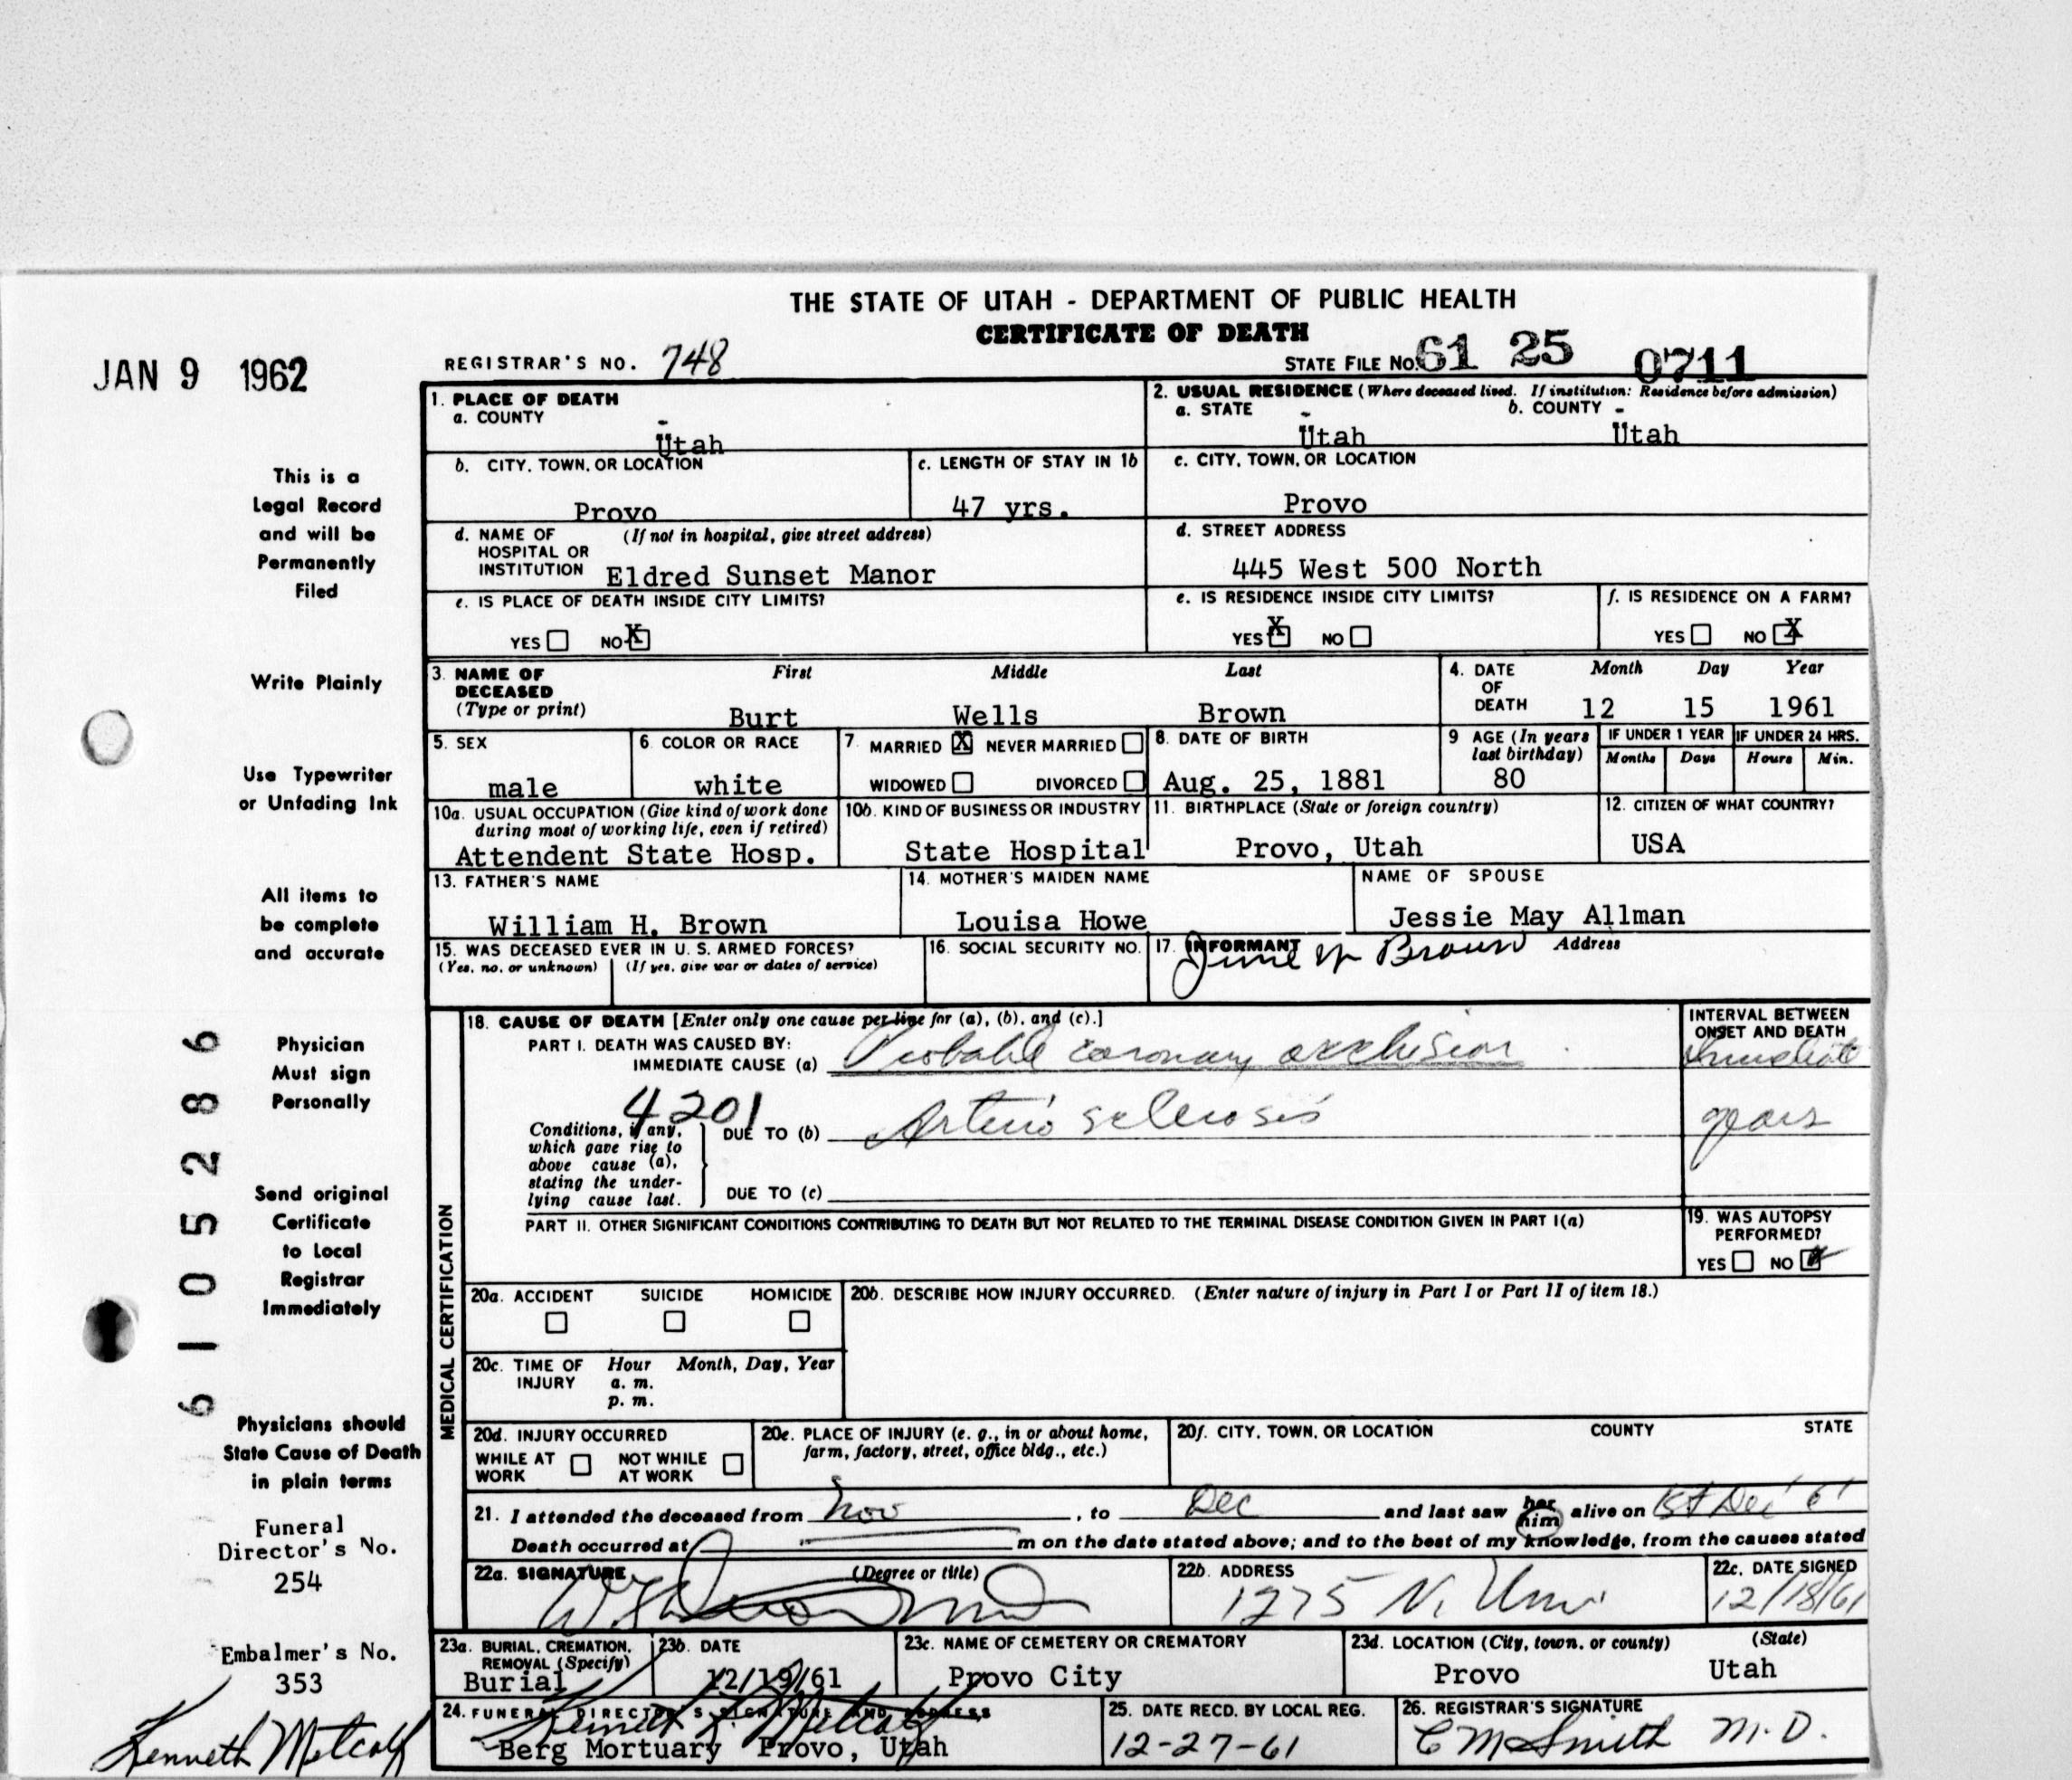 THE STATE OF UTAH - DEPARTMENT OF PUBLIC HEALTH
CERTIFICATE OF DEATH
JAN 9 1962
REGISTRAR'S NO. 748
STATE FILE NO. 61 25 0711
1. PLACE OF DEATH
a. COUNTY
Utah
2. USUAL RESIDENCE (Where deceased lived. If institution: Residence before admission)
a. STATE b. COUNTY
Utah Utah
b. CITY, TOWN, OR LOCATION
Provo
c. LENGTH OF STAY IN 1b
47 yrs.
c. CITY, TOWN, OR LOCATION
Provo
d. NAME OF (If not in hospital, give street address)
HOSPITAL OR
INSTITUTION Eldred Sunset Manor
d. STREET ADDRESS
445 West 500 North
e. IS PLACE OF DEATH INSIDE CITY LIMITS?
YES NO X
e. IS RESIDENCE INSIDE CITY LIMITS?
YES X NO
f. IS RESIDENCE ON A FARM?
YES NO X
3. NAME OF DECEASED (Type or print)
First Middle Last
Burt Wells Brown
4. DATE OF DEATH
Month Day Year
12 15 1961
5. SEX
male
6. COLOR OR RACE
white
7. MARRIED X NEVER MARRIED
WIDOWED DIVORCED
8. DATE OF BIRTH
Aug. 25, 1881
9 AGE (In years last birthday)
80
IF UNDER 1 YEAR
Months Days
IF UNDER 24 HRS.
Hours Min.
10a. USUAL OCCUPATION (Give kind of work done
during most of working life, even if retired)
Attendent State Hosp.
10b. KIND OF BUSINESS OR INDUSTRY
State Hospital
11. BIRTHPLACE (State or foreign country)
Provo, Utah
12. CITIZEN OF WHAT COUNTRY?
USA
13. FATHER'S NAME
William H. Brown
14. MOTHER'S MAIDEN NAME
Louisa Howe
NAME OF SPOUSE
Jessie May Allman
15. WAS DECEASED EVER IN U. S. ARMED FORCES?
(Yes, no, or unknown) (If yes, give war or dates of service)
16. SOCIAL SECURITY NO.
17. INFORMANT Address
Brown
MEDICAL CERTIFICATION
18. CAUSE OF DEATH [Enter only one cause per line for (a), (b), and (c).]
PART I. DEATH WAS CAUSED BY:
IMMEDIATE CAUSE (a) Probable coronary occlusion
INTERVAL BETWEEN
ONSET AND DEATH
Immediate
4201
Conditions, if any,
which gave rise to
above cause (a),
stating the under-
lying cause last.
DUE TO (b) Arterio sclerosis
years
DUE TO (c)
PART II. OTHER SIGNIFICANT CONDITIONS CONTRIBUTING TO DEATH BUT NOT RELATED TO THE TERMINAL DISEASE CONDITION GIVEN IN PART I(a)
19. WAS AUTOPSY
PERFORMED?
YES NO
20a. ACCIDENT SUICIDE HOMICIDE
20b. DESCRIBE HOW INJURY OCCURRED. (Enter nature of injury in Part I or Part II of item 18.)
20c. TIME OF INJURY
Hour Month, Day, Year
a. m.
p. m.
20d. INJURY OCCURRED
WHILE AT WORK NOT WHILE AT WORK
20e. PLACE OF INJURY (e. g., in or about home,
farm, factory, street, office bldg., etc.)
20f. CITY, TOWN, OR LOCATION COUNTY STATE
21. I attended the deceased from Nov, to Dec and last saw her him alive on 1st Dec '61
Death occurred at m on the date stated above; and to the best of my knowledge, from the causes stated
22a. SIGNATURE (Degree or title)
22b. ADDRESS
1275 N. Univ.
22c. DATE SIGNED
12/18/61
23a. BURIAL, CREMATION,
REMOVAL (Specify)
Burial
23b. DATE
12/19/61
23c. NAME OF CEMETERY OR CREMATORY
Provo City
23d. LOCATION (City, town, or county) (State)
Provo Utah
24. FUNERAL DIRECTOR'S SIGNATURE AND ADDRESS
Kenneth L. Metcalf
Berg Mortuary Provo, Utah
25. DATE RECD. BY LOCAL REG.
12-27-61
26. REGISTRAR'S SIGNATURE
C M Smith M.D.
This is a
Legal Record
and will be
Permanently
Filed
Write Plainly
Use Typewriter
or Unfading Ink
All items to
be complete
and accurate
Physician
Must sign
Personally
Send original
Certificate
to Local
Registrar
Immediately
Physicians should
State Cause of Death
in plain terms
6105286
Funeral
Director's No.
254
Embalmer's No.
353
Kenneth Metcalf